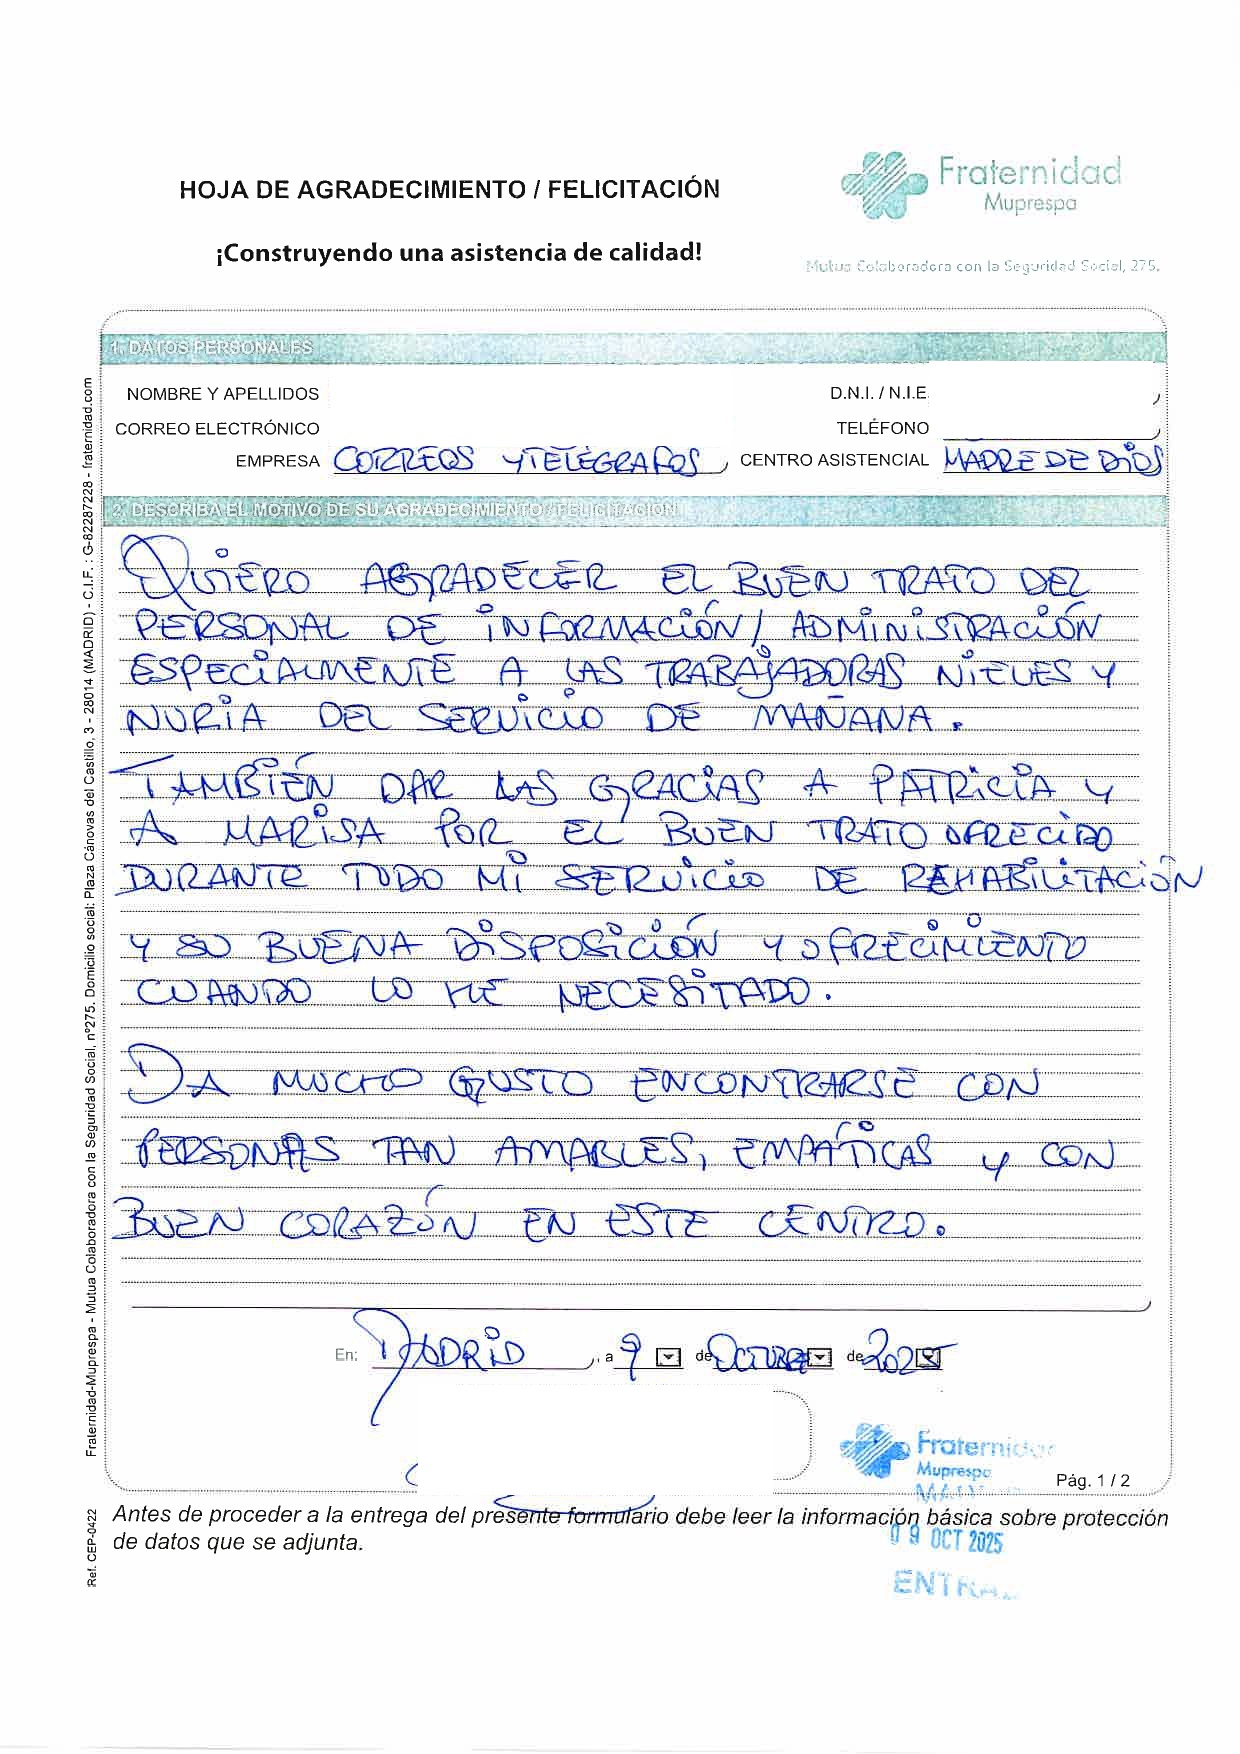 HOJA DE AGRADECIMIENTO / FELICITACIÓN
Fraternidad
Muprespa
¡Construyendo una asistencia de calidad!
Mutua Colaboradora con la Seguridad Social, 275.
1. DATOS PERSONALES
NOMBRE Y APELLIDOS
D.N.I. / N.I.E.
CORREO ELECTRÓNICO
TELÉFONO
EMPRESA CORREOS Y TELEGRAFOS, CENTRO ASISTENCIAL MADRE DE DIOS
2. DESCRIBA EL MOTIVO DE SU AGRADECIMIENTO / FELICITACIÓN
QUIERO AGRADECER EL BUEN TRATO DEL
PERSONAL DE INFORMACIÓN/ ADMINISTRACIÓN
ESPECIALMENTE A LAS TRABAJADORAS NIEVES Y
NURIA DEL SERVICIO DE MAÑANA.
TAMBIÉN DAR LAS GRACIAS A PATRICIA Y
A MARISA POR EL BUEN TRATO OFRECIDO
DURANTE TODO MI SERVICIO DE REHABILITACIÓN
Y SU BUENA DISPOSICIÓN Y OFRECIMIENTO
CUANDO LO HE NECESITADO.
DA MUCHO GUSTO ENCONTRARSE CON
PERSONAS TAN AMABLES, EMPÁTICAS Y CON
BUEN CORAZÓN EN ESTE CENTRO.
En: MADRID, a 9 de OCTUBRE de 2025
Fraternidad
Muprespa
Pág. 1 / 2
Antes de proceder a la entrega del presente formulario debe leer la información básica sobre protección
de datos que se adjunta.
09 OCT 2025
Fraternidad-Muprespa - Mutua Colaboradora con la Seguridad Social, nº275. Domicilio social: Plaza Cánovas del Castillo, 3 - 28014 (MADRID) - C.I.F. : G-82287228 - fraternidad.com
Ref. CEP-0422